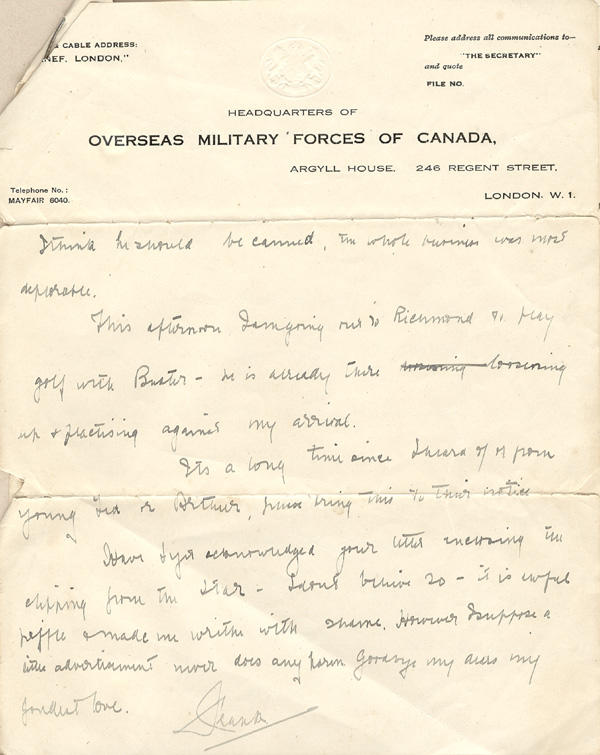 CABLE ADDRESS:
NEF, LONDON,"
Please address all communications to—
"THE SECRETARY"
and quote
FILE NO.
HEADQUARTERS OF
OVERSEAS MILITARY FORCES OF CANADA,
ARGYLL HOUSE, 246 REGENT STREET,
LONDON. W. 1.
Telephone No.:
MAYFAIR 6040.
I think he should be canned, the whole business was most
deplorable.
This afternoon I am going out to Richmond to play
golf with Buster – he is already there loosening
up & practising against my arrival.
Its a long time since I heard of or from
young Ted or Arthur, please bring this to their notice
Have I yet acknowledged your letter enclosing the
clipping from the Star – I dont believe so – it is awful
piffle & made me writhe with shame. However I suppose a
little advertisement never does any harm Goodbye my dears my
fondest love.
Frank